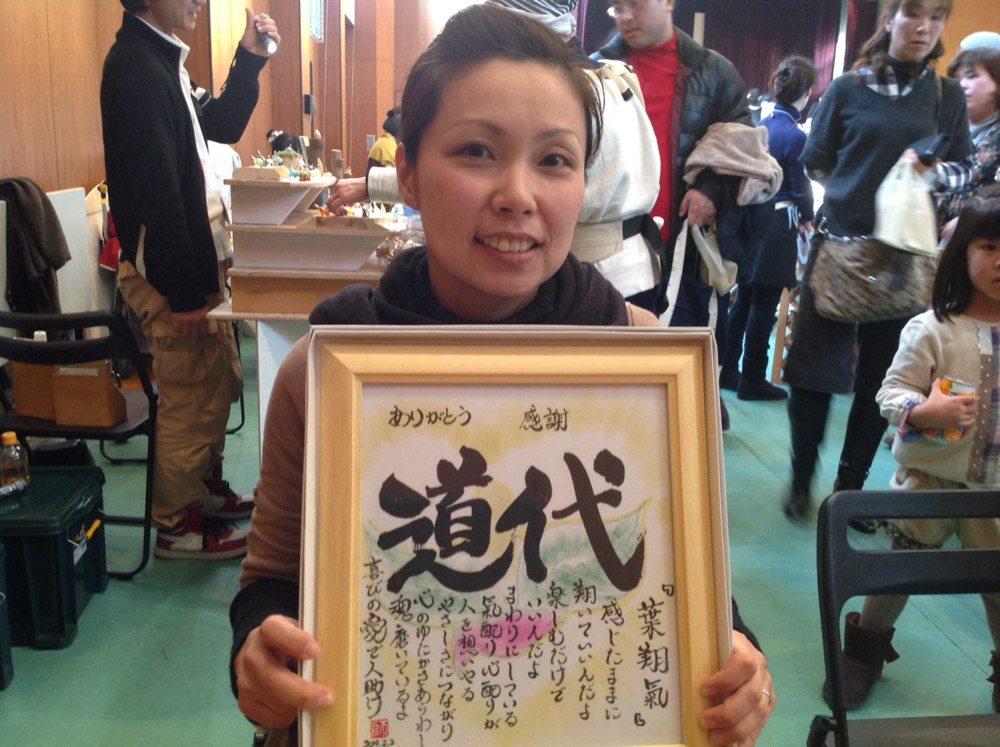 ありがとう　感謝
道代
『葉翔氣』
感じたままに
翔いていいんだよ
楽しむだけで
いいんだよ
まわりにしている
氣配り心配りが
人を想いやる
やさしさにつながり
心のゆたかさあらわし
魂磨いているよ
喜びの愛で人助け